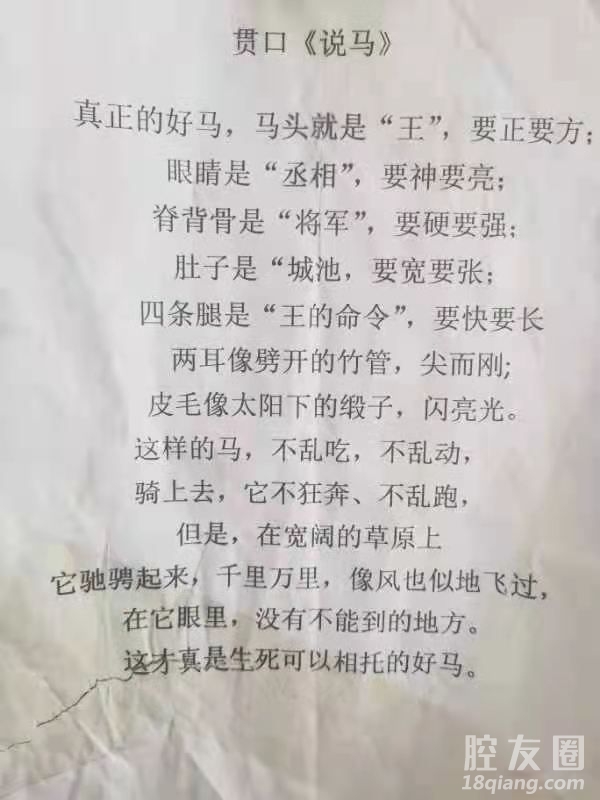 贯口《说马》
真正的好马，马头就是“王”，要正要方；
眼睛是“丞相”，要神要亮；
脊背骨是“将军”，要硬要强；
肚子是“城池，要宽要张；
四条腿是“王的命令”，要快要长
两耳像劈开的竹管，尖而刚;
皮毛像太阳下的缎子，闪亮光。
这样的马，不乱吃，不乱动，
骑上去，它不狂奔、不乱跑，
但是，在宽阔的草原上
它驰骋起来，千里万里，像风也似地飞过，
在它眼里，没有不能到的地方。
这才真是生死可以相托的好马。
腔友圈
18qiang.com